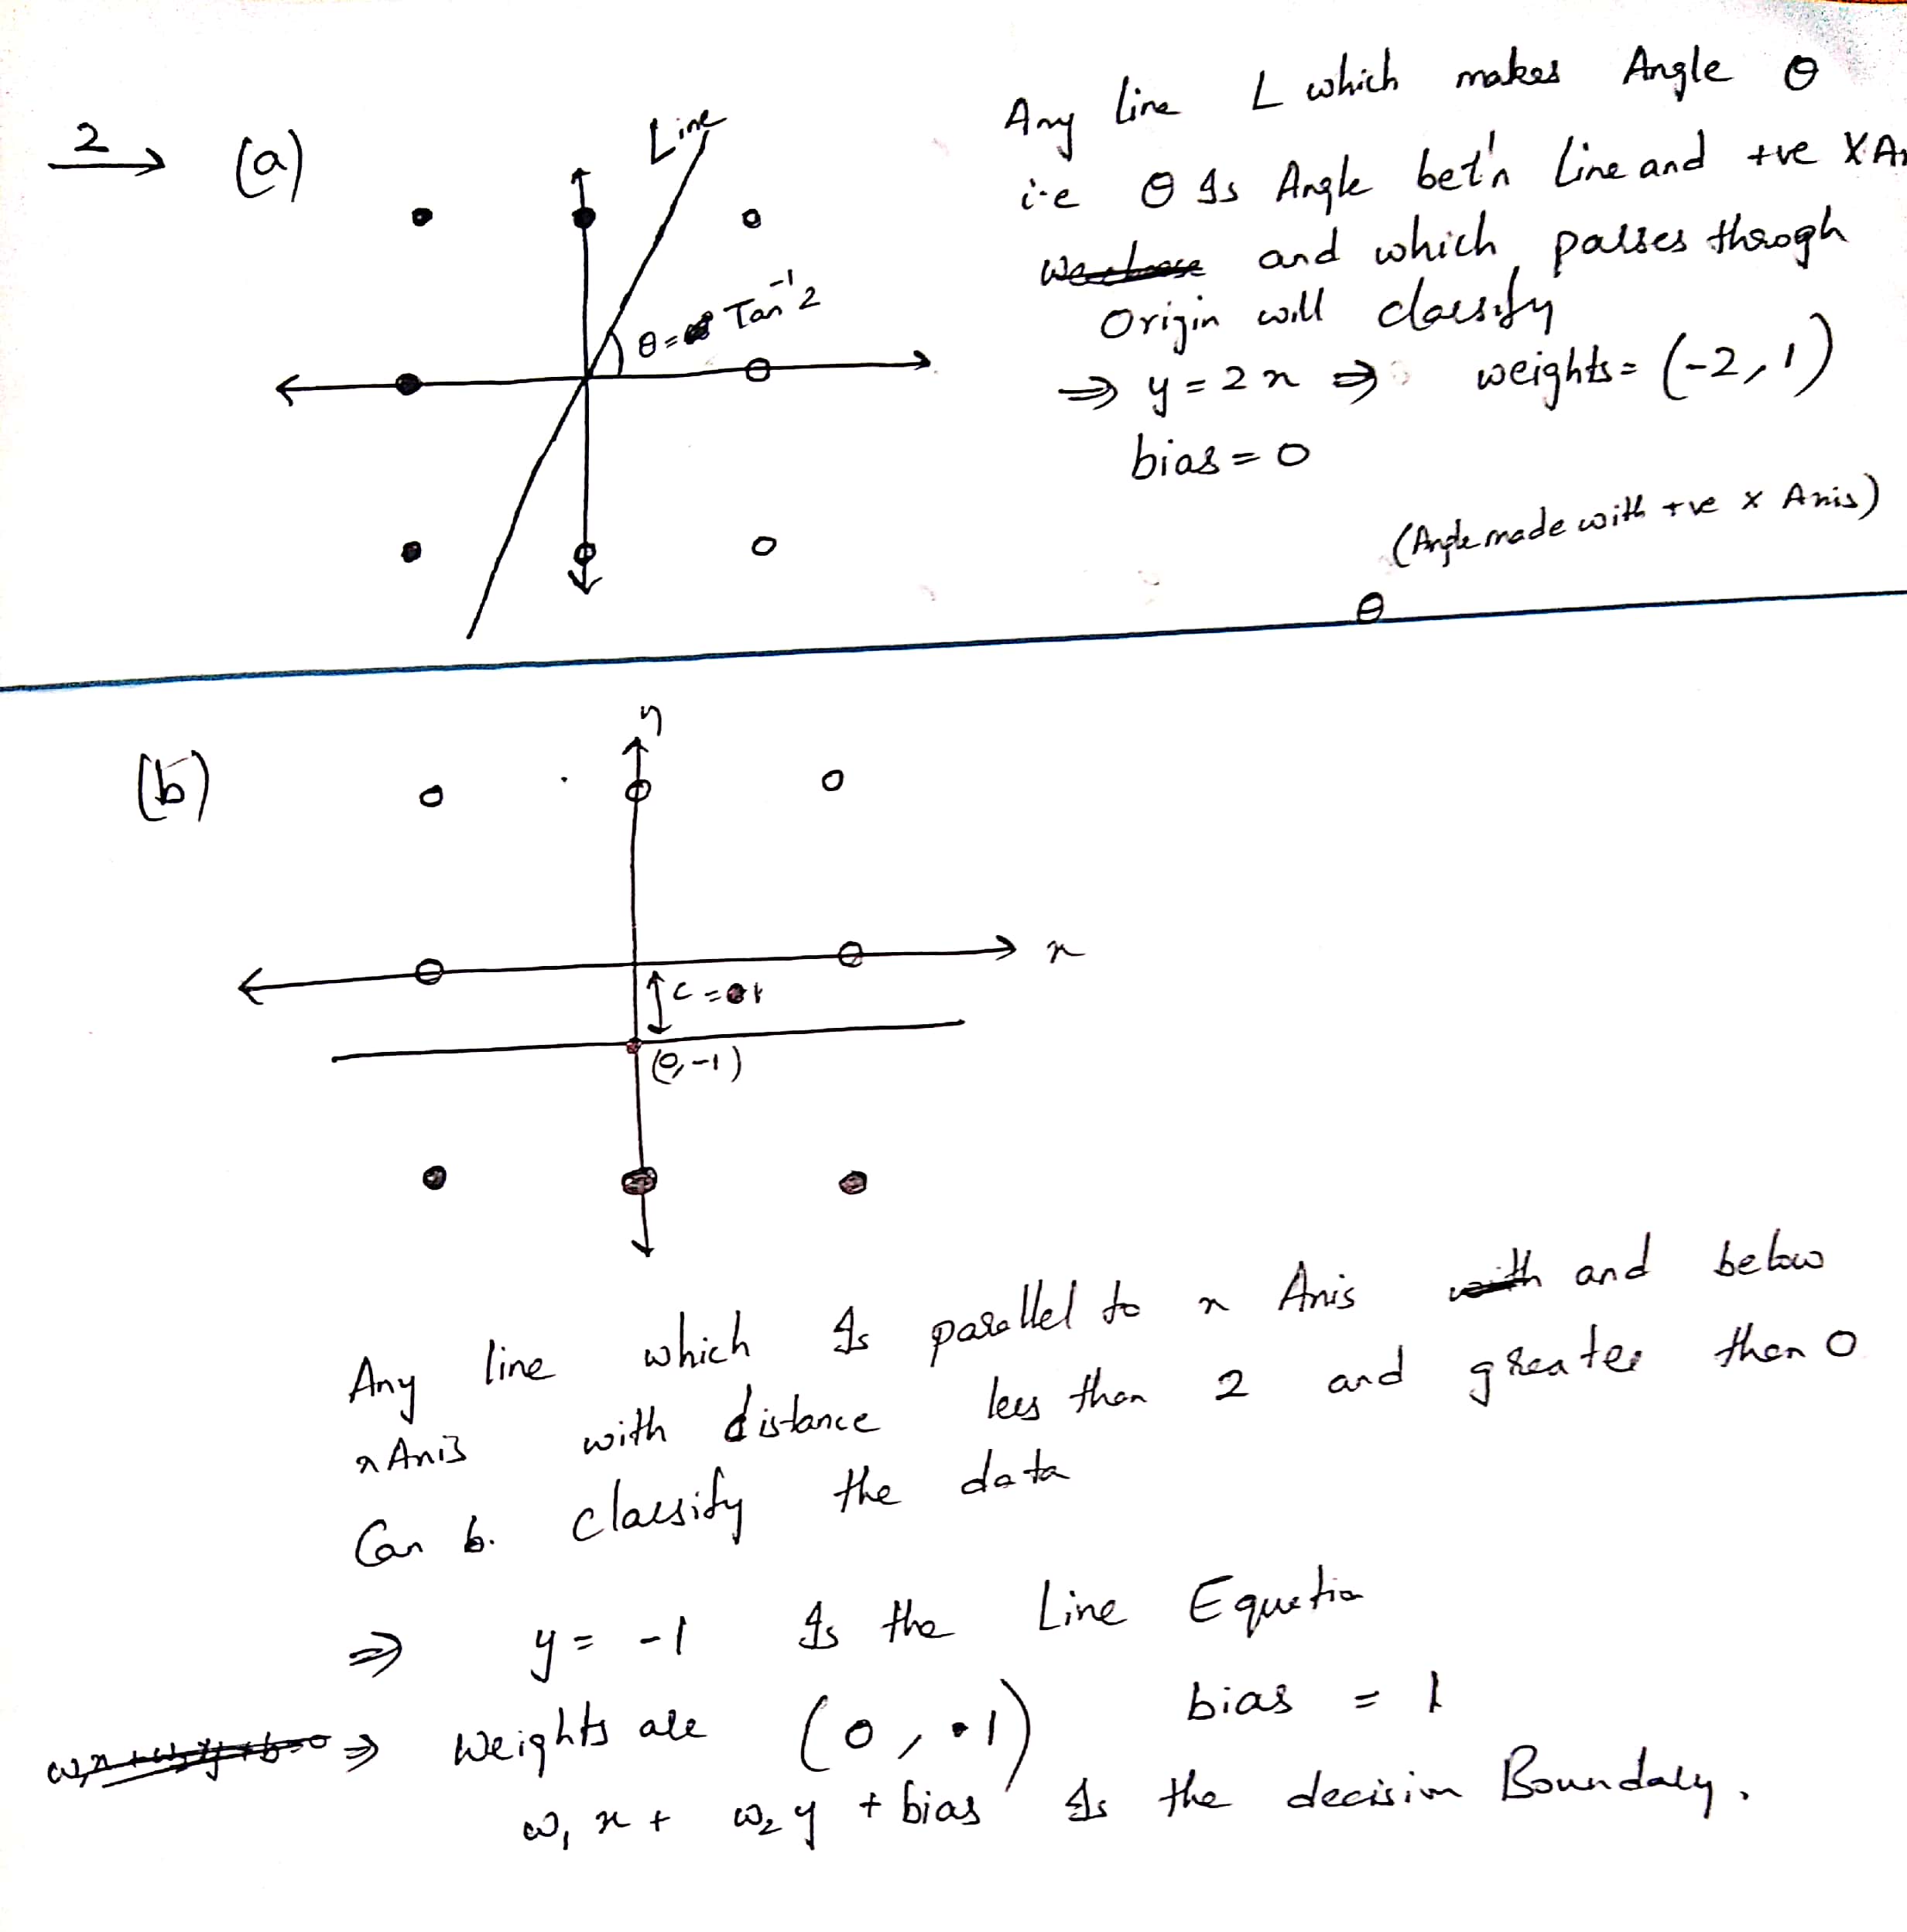 2 → (a)
Line
θ = Tan⁻¹2
Any line L which makes Angle θ
i.e θ Is Angle bet'n Line and +ve X A
and which passes throgh
Origin will classify
⇒ y = 2x ⇒ weights = (-2, 1)
bias = 0
(Angle made with +ve x Axis)
θ
(b)
y
x
c =
(0, -1)
Any line which Is parallel to x Axis and below
x Axis with distance less than 2 and greater than 0
Can b. classify the data
⇒ y = -1 Is the Line Equation
w₁x + w₂y + b = 0 ⇒ Weights are (0, 1) bias = 1
w₁x + w₂y + bias Is the decision Boundary.